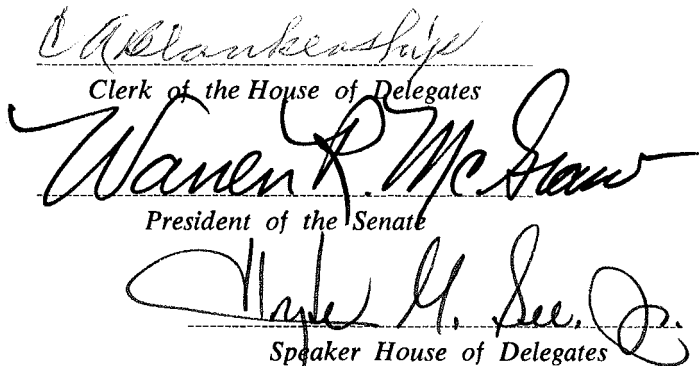 C A Blankenship
Clerk of the House of Delegates
Warren R. McGraw
President of the Senate
Clyde M. See, Jr.
Speaker House of Delegates